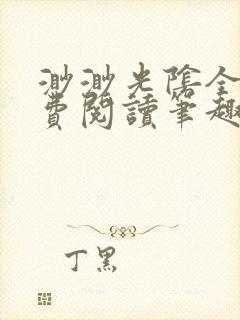 渺渺光陰全
費閱讀筆趣
丁黑